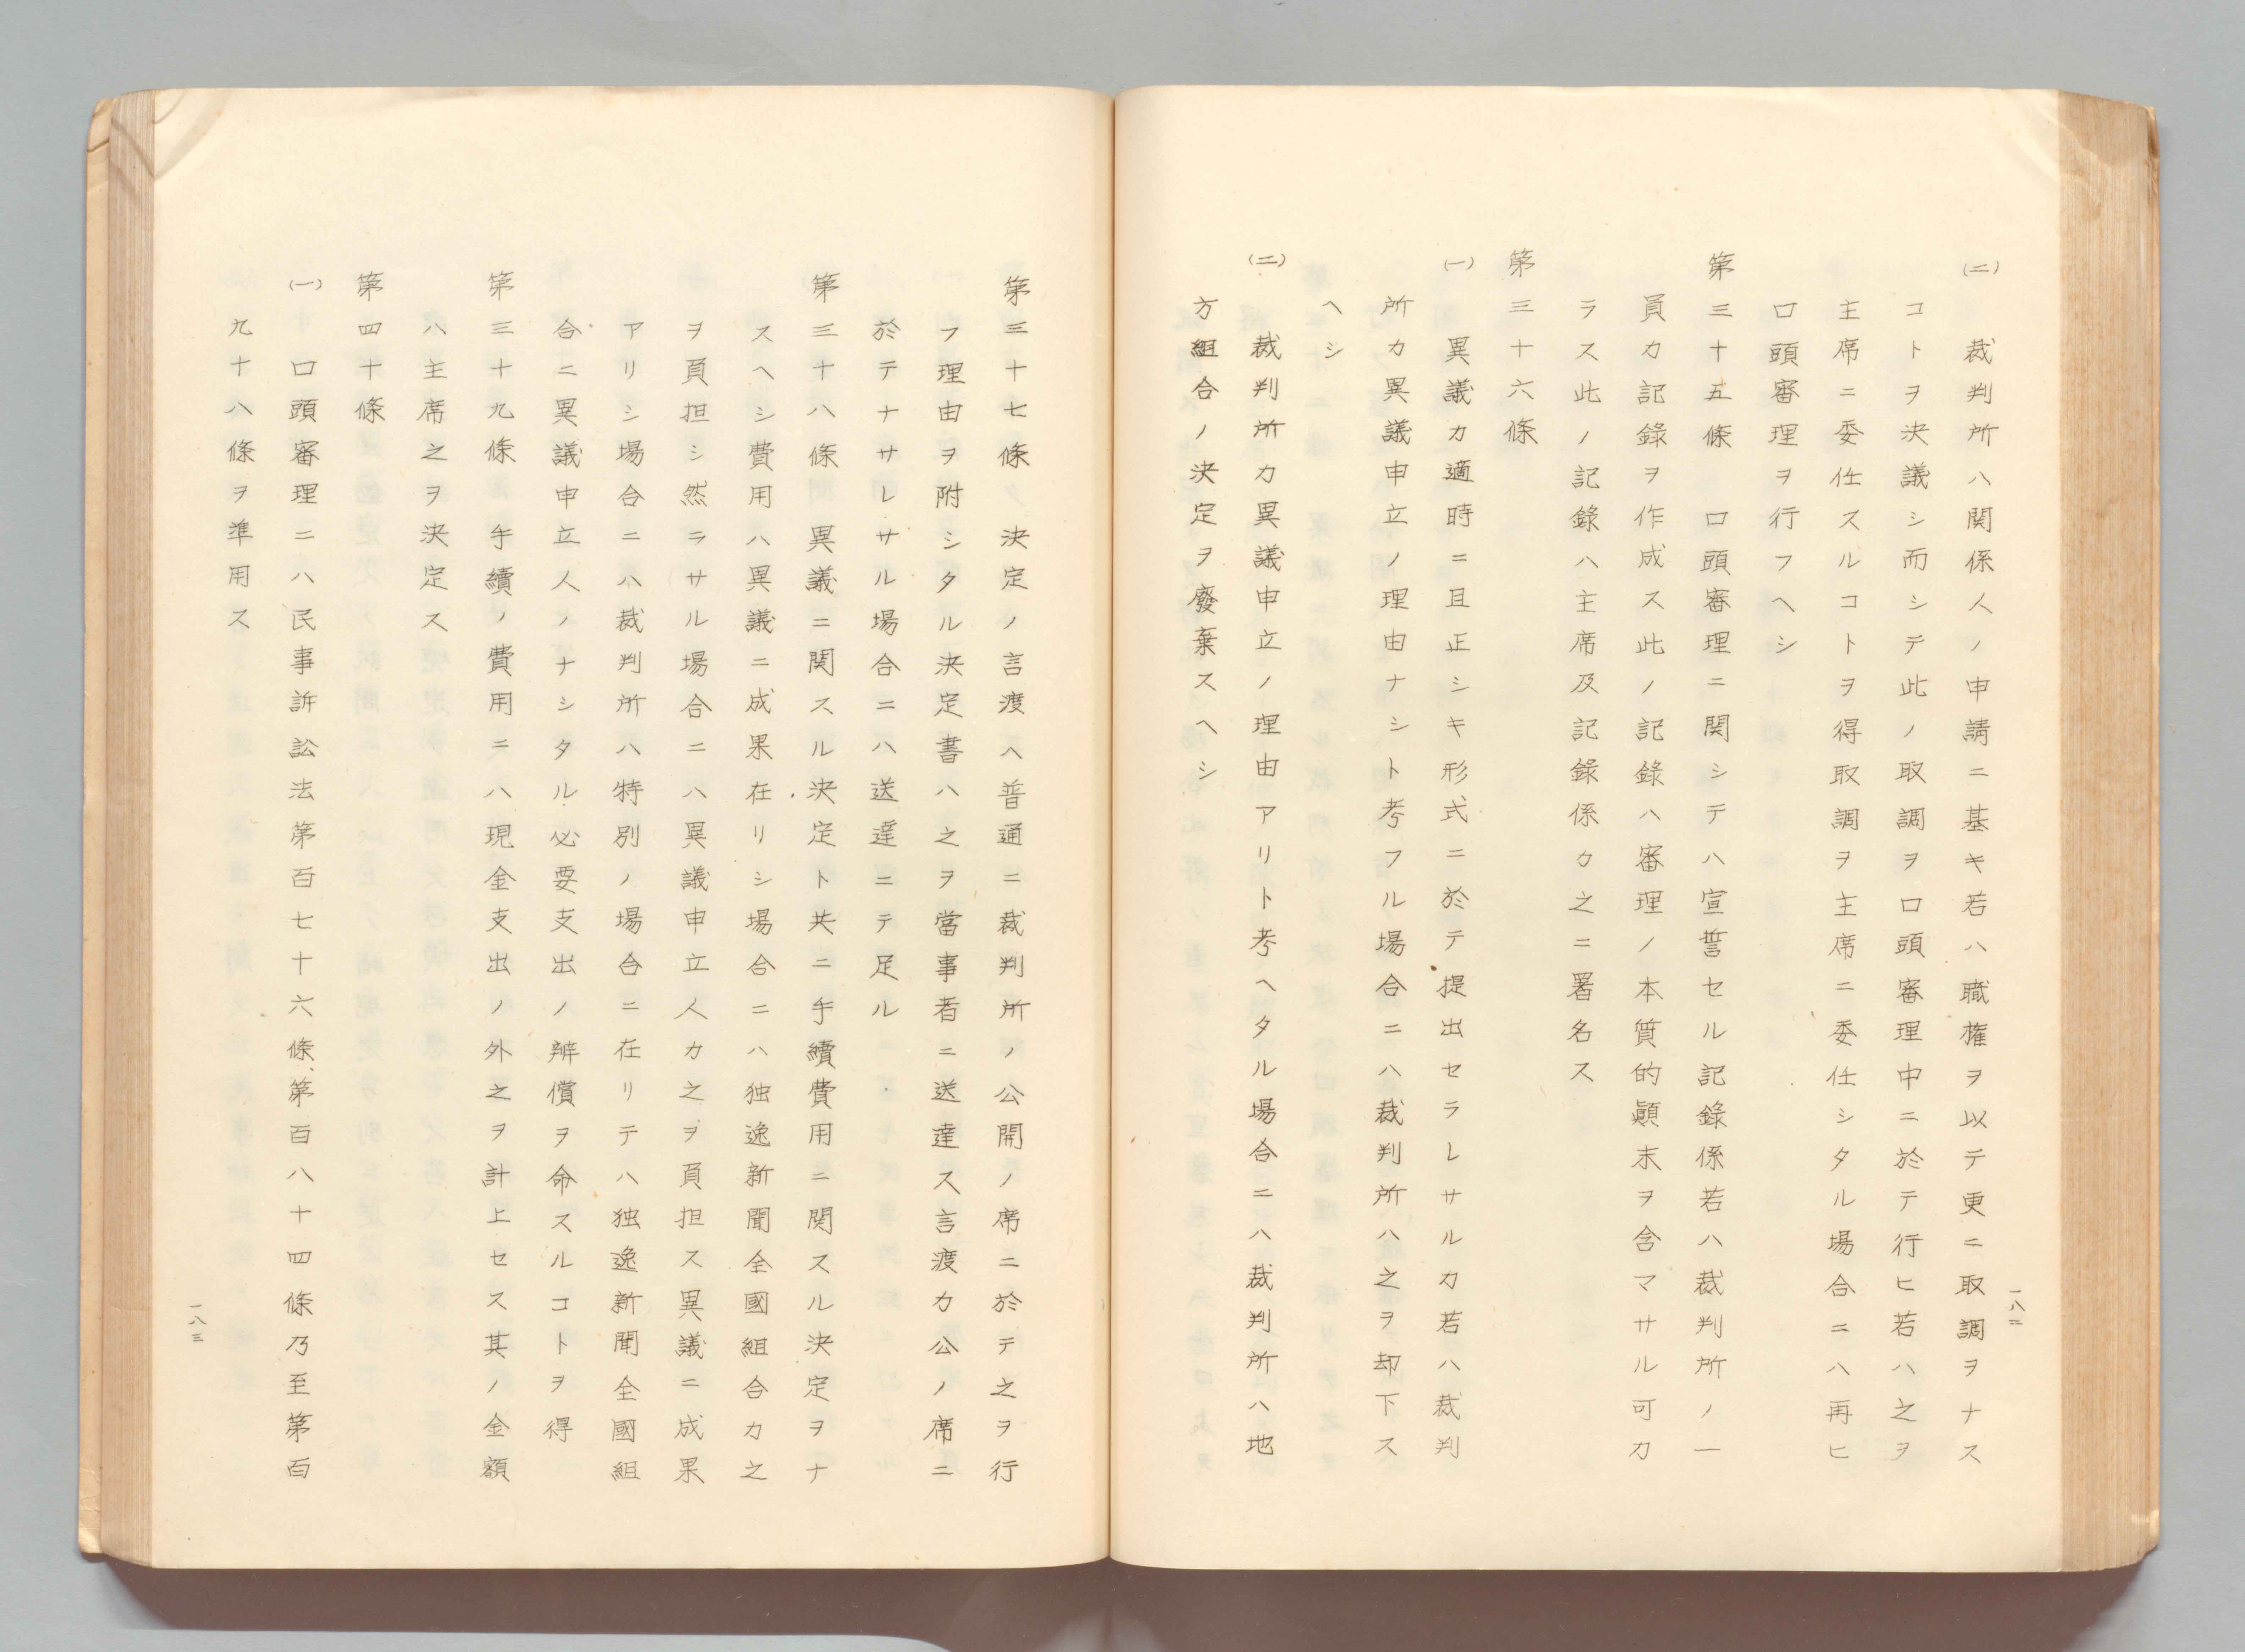 (二)　裁判所ハ関係人ノ申請ニ基キ若ハ職権ヲ以テ更ニ取調ヲナス
コトヲ決議シ而シテ此ノ取調ヲ口頭審理中ニ於テ行ヒ若ハ之ヲ
主席ニ委任スルコトヲ得取調ヲ主席ニ委任シタル場合ニハ再ヒ
口頭審理ヲ行フヘシ
第三十五條　口頭審理ニ関シテハ宣誓セル記錄係若ハ裁判所ノ一
員カ記錄ヲ作成ス此ノ記錄ハ審理ノ本質的顚末ヲ含マサル可カ
ラス此ノ記錄ハ主席及記錄係カ之ニ署名ス
第三十六條
(一)　異議カ適時ニ且正シキ形式ニ於テ提出セラレサルカ若ハ裁判
所カ異議申立ノ理由ナシト考フル場合ニハ裁判所ハ之ヲ却下ス
ヘシ
(二)　裁判所カ異議申立ノ理由アリト考ヘタル場合ニハ裁判所ハ地
方組合ノ決定ヲ廢棄スヘシ
一八二
第三十七條　決定ノ言渡ハ普通ニ裁判所ノ公開ノ席ニ於テ之ヲ行
フ理由ヲ附シタル決定書ハ之ヲ當事者ニ送達ス言渡カ公ノ席ニ
於テナサレサル場合ニハ送達ニテ足ル
第三十八條　異議ニ関スル決定ト共ニ手續費用ニ関スル決定ヲナ
スヘシ費用ハ異議ニ成果在リシ場合ニハ独逸新聞全國組合カ之
ヲ負担シ然ラサル場合ニハ異議申立人カ之ヲ負担ス異議ニ成果
アリシ場合ニハ裁判所ハ特別ノ場合ニ在リテハ独逸新聞全國組
合ニ異議申立人ノナシタル必要支出ノ辨償ヲ命スルコトヲ得
第三十九條　手續ノ費用ニハ現金支出ノ外之ヲ計上セス其ノ金額
ハ主席之ヲ決定ス
第四十條
(一)　口頭審理ニハ民事訴訟法第百七十六條、第百八十四條乃至第百
九十八條ヲ準用ス
一八三